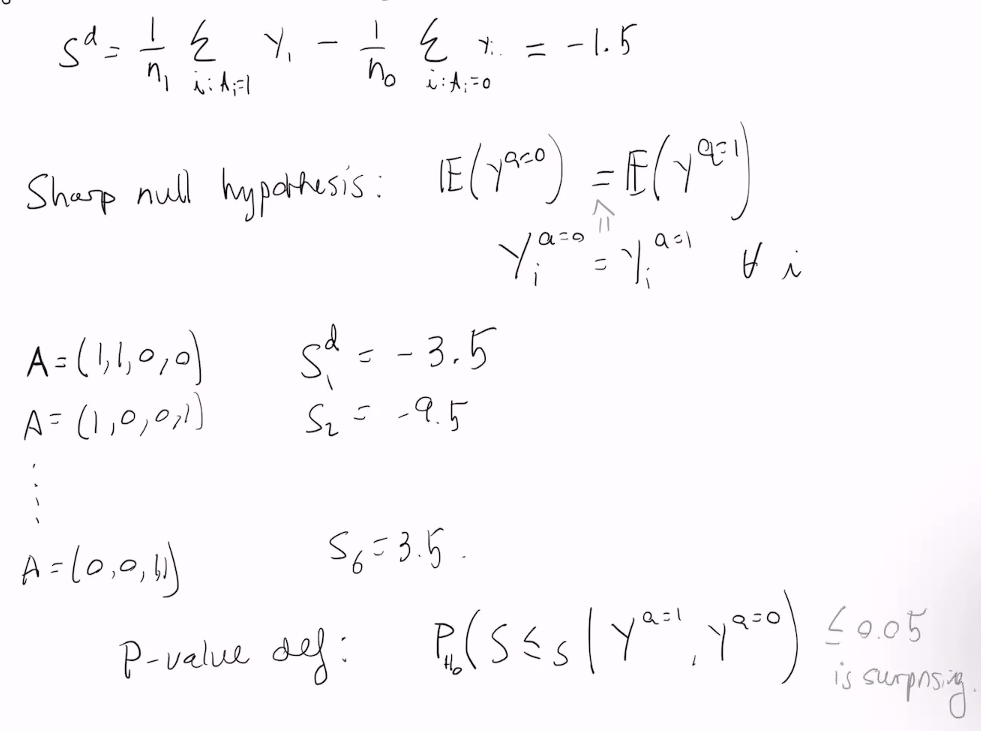 S^d = 1/n₁ Σ_{i:Aᵢ=1} Yᵢ − 1/n₀ Σ_{i:Aᵢ=0} Yᵢ = −1.5
Sharp null hypothesis: 𝔼(Y^{a=0}) = 𝔼(Y^{a=1})
⇑
Yᵢ^{a=0} = Yᵢ^{a=1} ∀ i
A=(1,1,0,0) S₁^d = −3.5
A=(1,0,0,1) S₂ = −9.5
⋮
A=(0,0,1,1) S₆=3.5.
P-value def: P_{H₀}(S ≤ s | Y^{a=1}, Y^{a=0}) ≤ 0.05
is surprising.